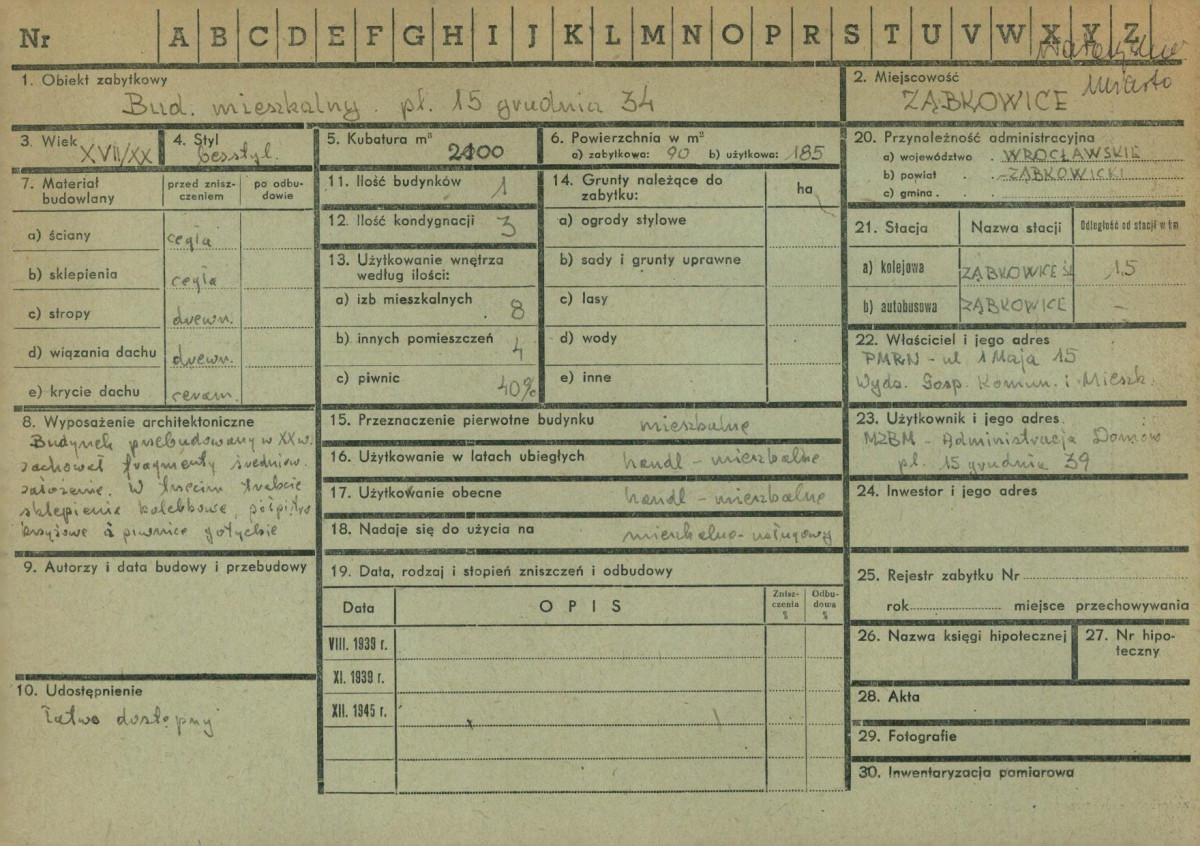 Nr A B C D E F G H I J K L M N O P R S T U V W X Y Z
1. Obiekt zabytkowy
Bud. mieszkalny. pl. 15 grudnia 34
2. Miejscowość
ZĄBKOWICE
Miasto
3. Wiek
XVII/XX
4. Styl
besstyl.
5. Kubatura m³
2100
6. Powierzchnia w m²
a) zabytkowa: 90 b) użytkowa: 185
7. Materiał budowlany
przed znisz-
czeniem
po odbu-
dowie
a) ściany cegła
b) sklepienia cegła
c) stropy drewn.
d) wiązania dachu drewn.
e) krycie dachu ceram.
8. Wyposażenie architektoniczne
Budynek przebudowany w XX w.
zachował fragmenty średniow.
założenie. W trzecim trakcie
sklepienia kolebkowe,
krzyżowe piwnice gotyckie
9. Autorzy i data budowy i przebudowy
10. Udostępnienie
Łatwo dostępny
11. Ilość budynków 1
12. Ilość kondygnacji 3
13. Użytkowanie wnętrza
według ilości:
a) izb mieszkalnych 8
b) innych pomieszczeń 4
c) piwnic 40%
14. Grunty należące do
zabytku:
ha
a) ogrody stylowe
b) sady i grunty uprawne
c) lasy
d) wody
e) inne
15. Przeznaczenie pierwotne budynku mieszkalne
16. Użytkowanie w latach ubiegłych handl - mieszkalne
17. Użytkowanie obecne handl - mieszkalne
18. Nadaje się do użycia na mieszkalno-usługowy
19. Data, rodzaj i stopień zniszczeń i odbudowy
Data OPIS
Znisz-
czenia
%
Odbu-
dowa
%
VIII. 1939 r.
XI. 1939 r.
XII. 1945 r.
20. Przynależność administracyjna
a) województwo . WROCŁAWSKIE
b) powiat . . ZĄBKOWICKI
c) gmina .
21. Stacja Nazwa stacji Odległość od stacji w km
a) kolejowa ZĄBKOWICE ŚL 1,5
b) autobusowa ZĄBKOWICE -
22. Właściciel i jego adres
PMRN - ul 1 Maja 15
Wydz. Gosp. Komun. i Mieszk.
23. Użytkownik i jego adres
MZBM - Administracja Domów
pl. 15 grudnia 39
24. Inwestor i jego adres
25. Rejestr zabytku Nr
rok miejsce przechowywania
26. Nazwa księgi hipotecznej
27. Nr hipo-
teczny
28. Akta
29. Fotografie
30. Inwentaryzacja pomiarowa